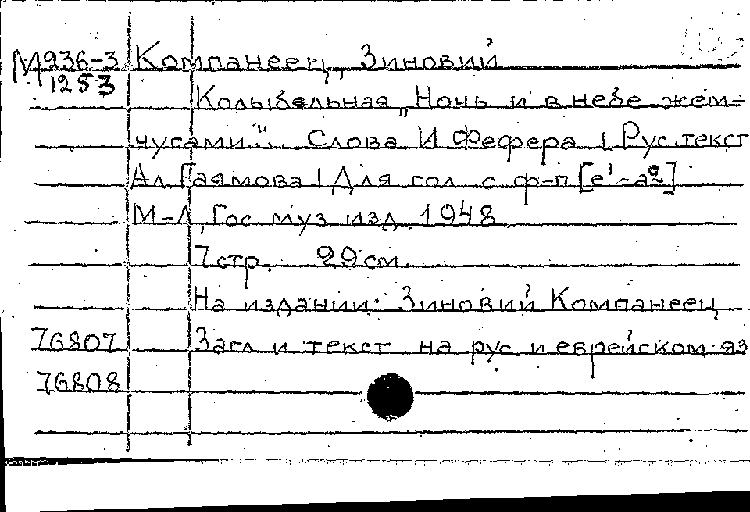 М936-3 Компанеец, Зиновий
1253
Колыбельная „Ночь и в небе жем-
чугами". Слова И Фефера | Рус.текст
Ал Гаямова | Для гол. с ф-п [e¹-a²]
М-Л, Гос муз изд. 1948
7стр. 29см.
На издании: Зиновий Компанеец
76807 Загл и текст на рус и еврейском яз
76808